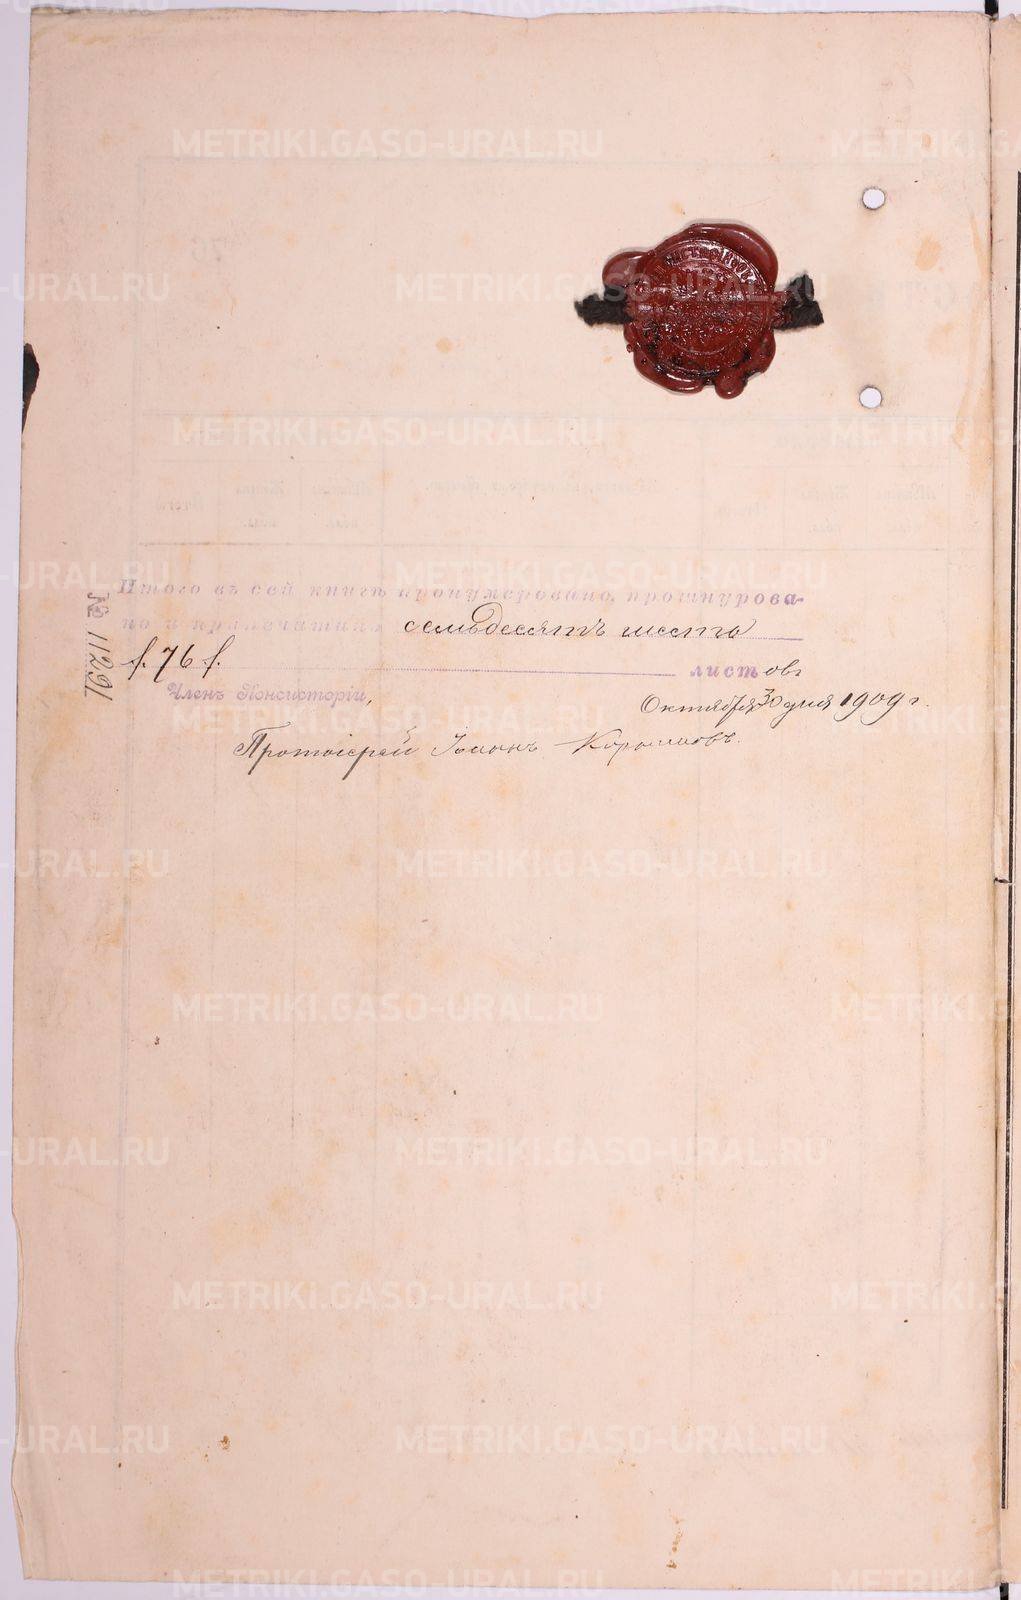 Итого въ сей книгѣ пронумеровано, прошнурова-
но и припечатано семьдесятъ шесть
/. 76 /. листовъ
Членъ Консисторіи,
Октября 30 дня 1909 г.
Протоіерей Іоаннъ
№ 11291
METRIKI.GASO-URAL.RU